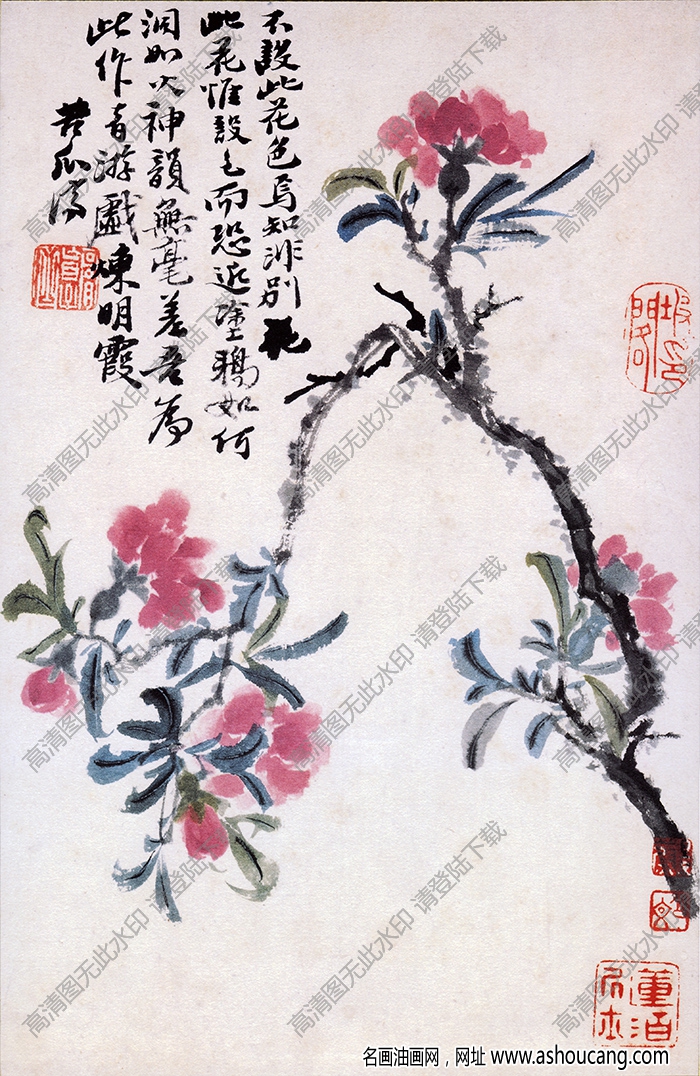 不設此花色焉知非別花
此花惟設色而恐近塗鴉如何
洞如火神韻無毫差吾爲
此作者游戲煉明霞
苦瓜濟
高清图无此水印 请登陆下载
名画油画网，网址 www.ashoucang.com